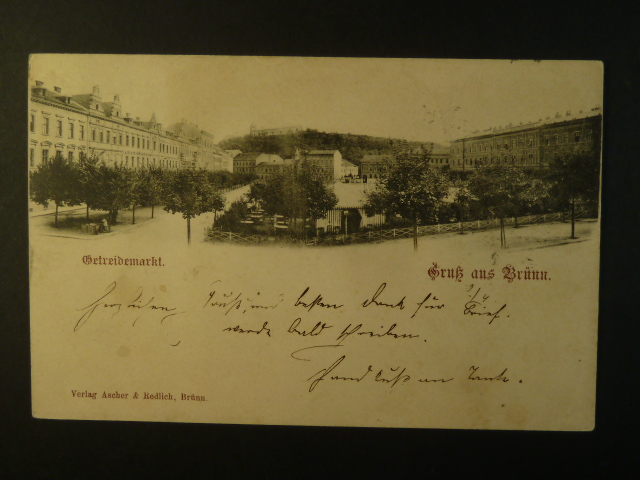 Getreidemarkt.
Gruß aus Brünn.
Herzlichen Gruß, und besten Dank für Brief.
werde bald schreiben.
Handkuß an Tante.
Verlag Ascher & Redlich, Brünn.